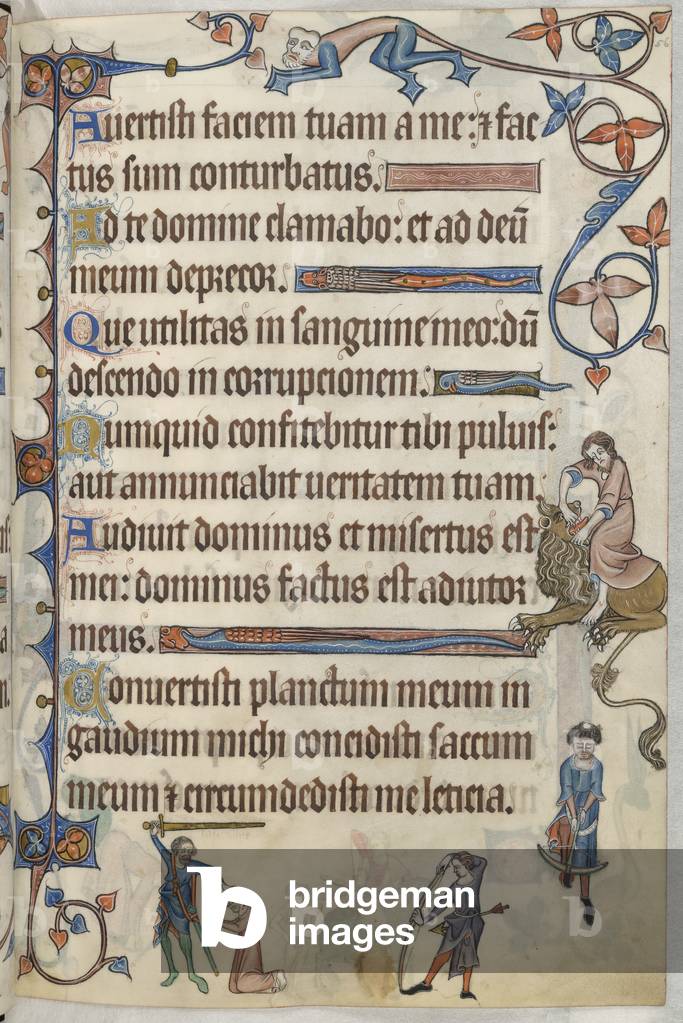 56
Auertisti faciem tuam a me: ⁊ fac
tus sum conturbatus.
Ad te domine clamabo: et ad deū
meum deprecor.
Que utilitas in sanguine meo: dū
descendo in corrupcionem.
Numquid confitebitur tibi puluis:
aut annunciabit ueritatem tuam.
Audiuit dominus et misertus est
mei: dominus factus est adiutor
meus.
Conuertisti planctum meum in
gaudium michi concidisti saccum
meum ⁊ circumdedisti me leticia.
b bridgeman
images